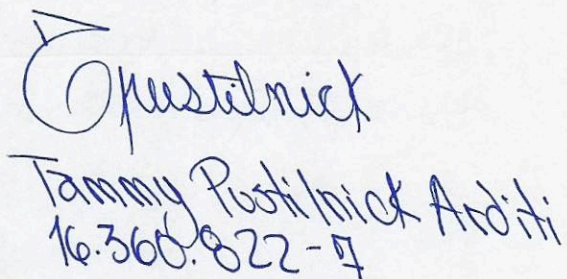 Tpustilnick
Tammy Pustilnick Arditi
16.360.822-7